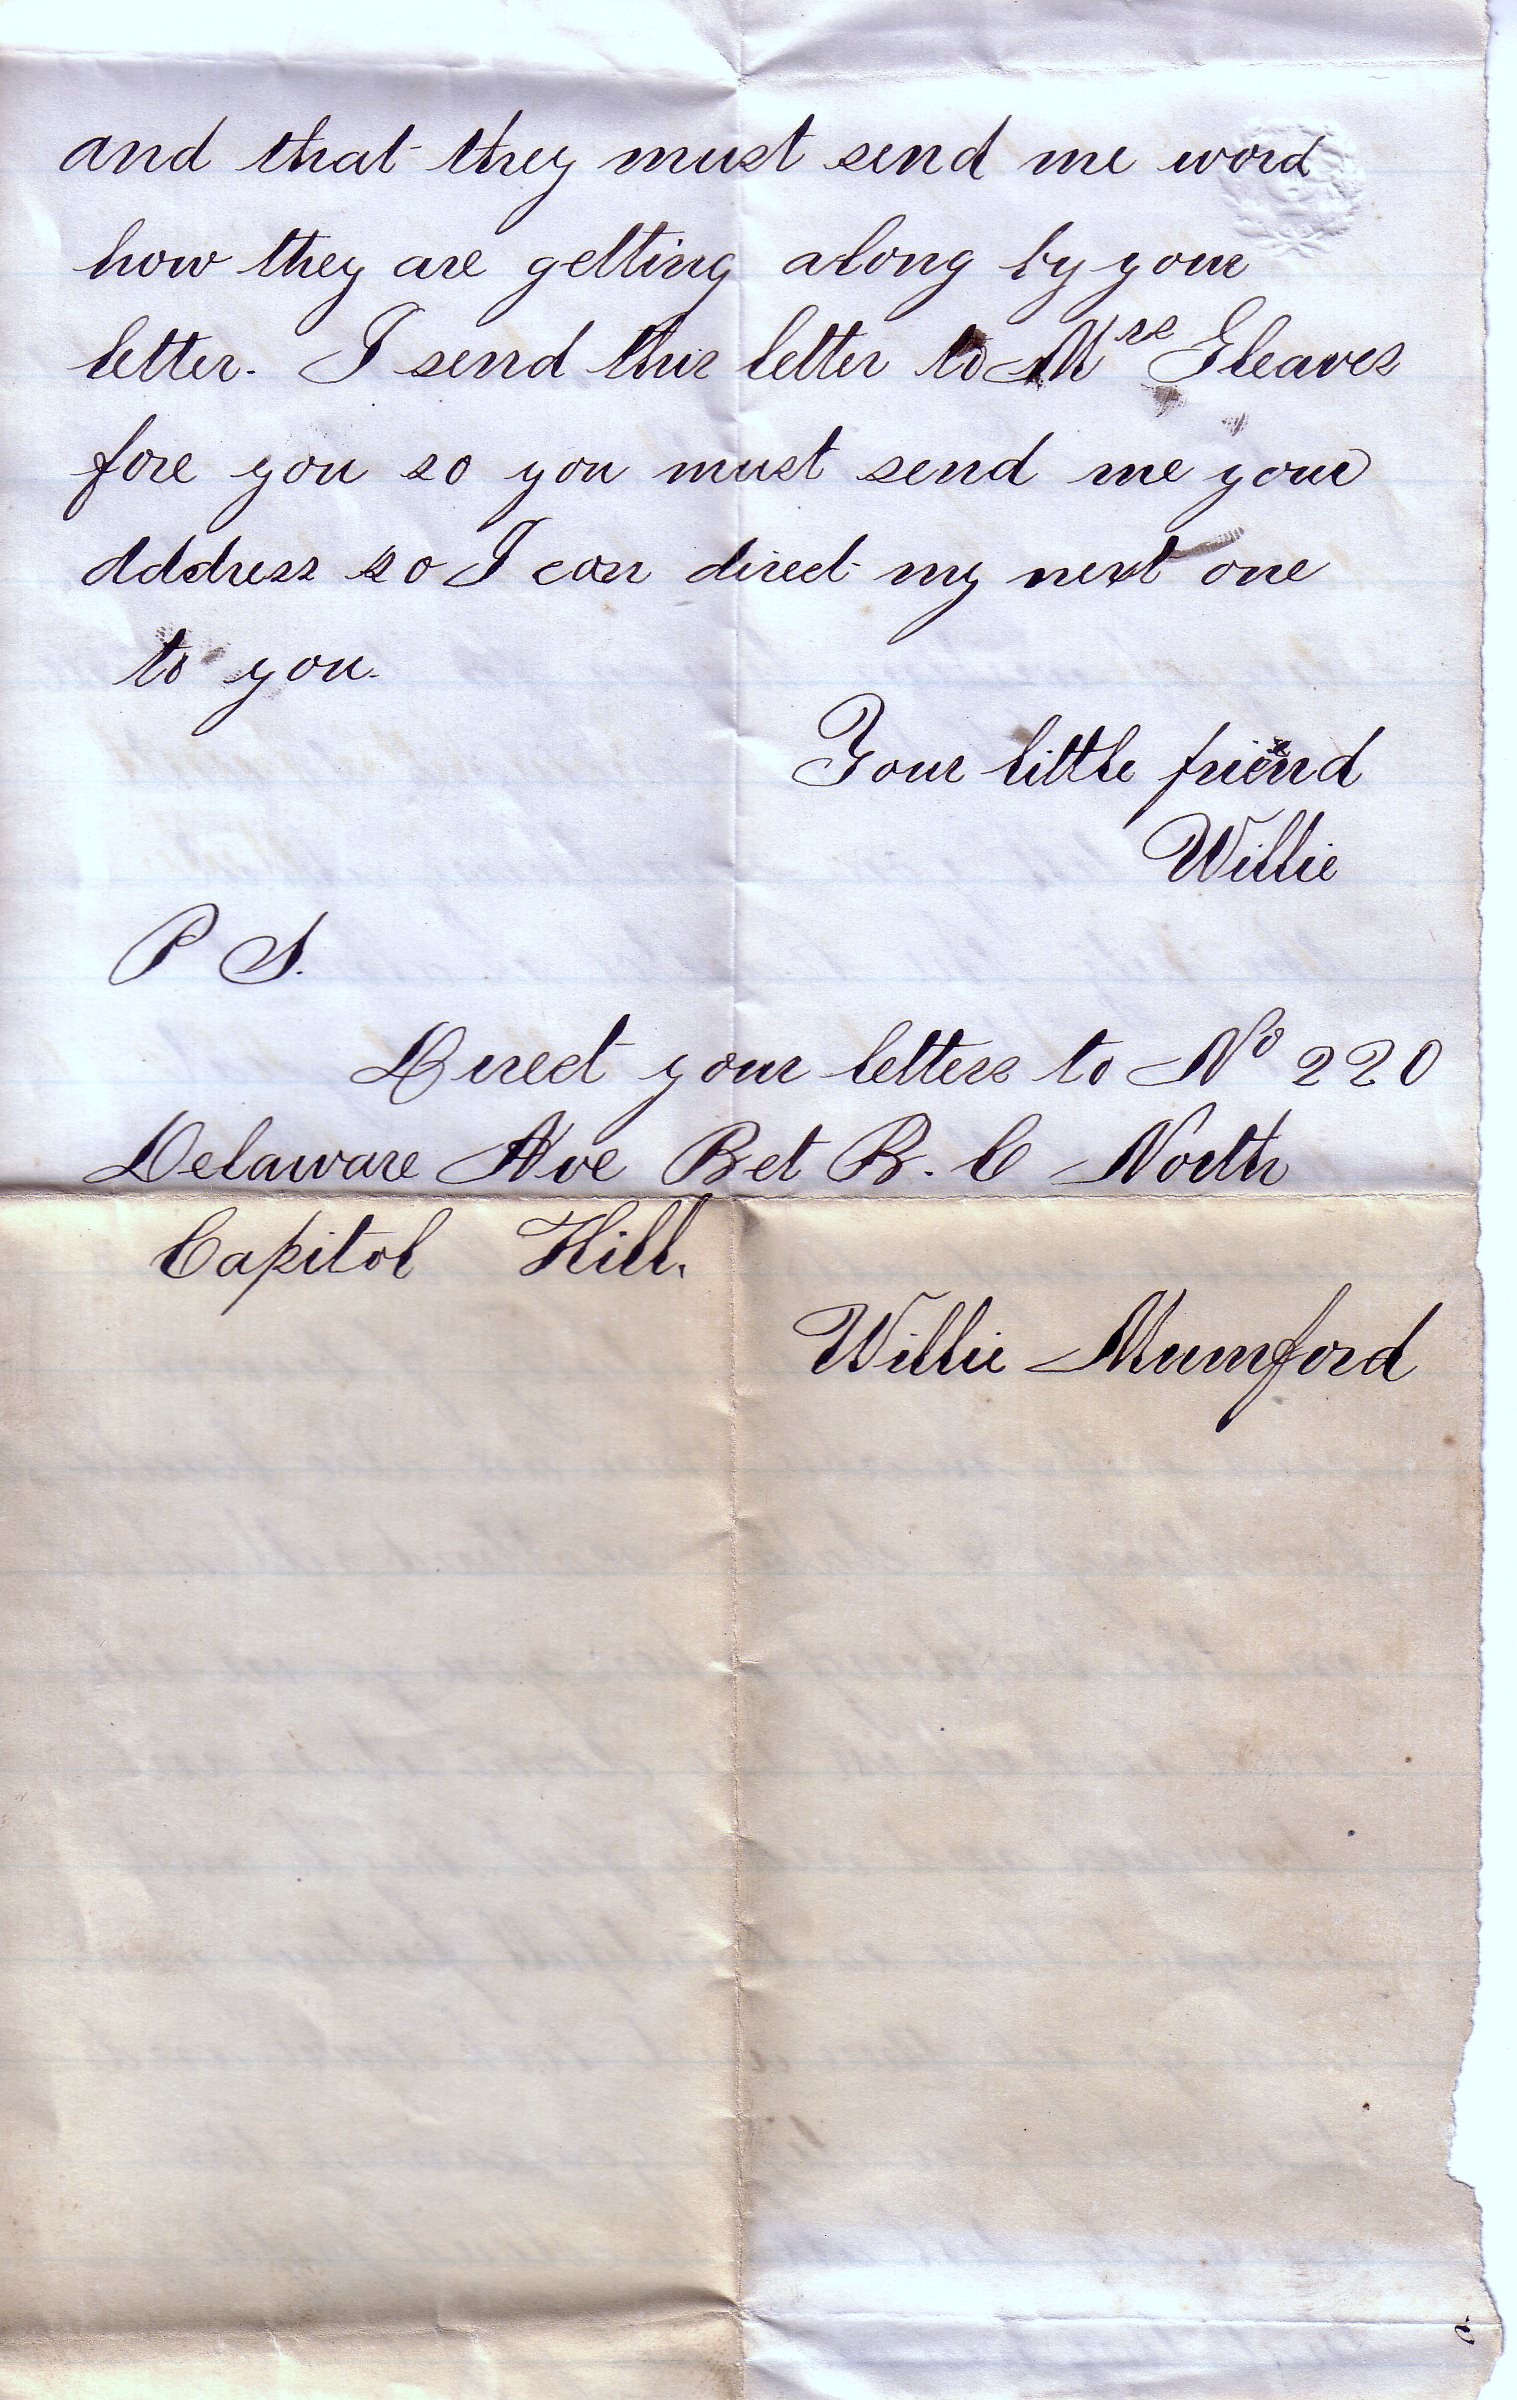 and that they must send me word
how they are getting along by your
letter. I send this letter to Mrs Gleaves
fore you so you must send me your
Address so I can direct my next one
to you.
Your little friend
Willie
P S.
Direct your letters to No 220
Delaware Ave Bet B. C North
Capitol Hill.
Willie Mumford